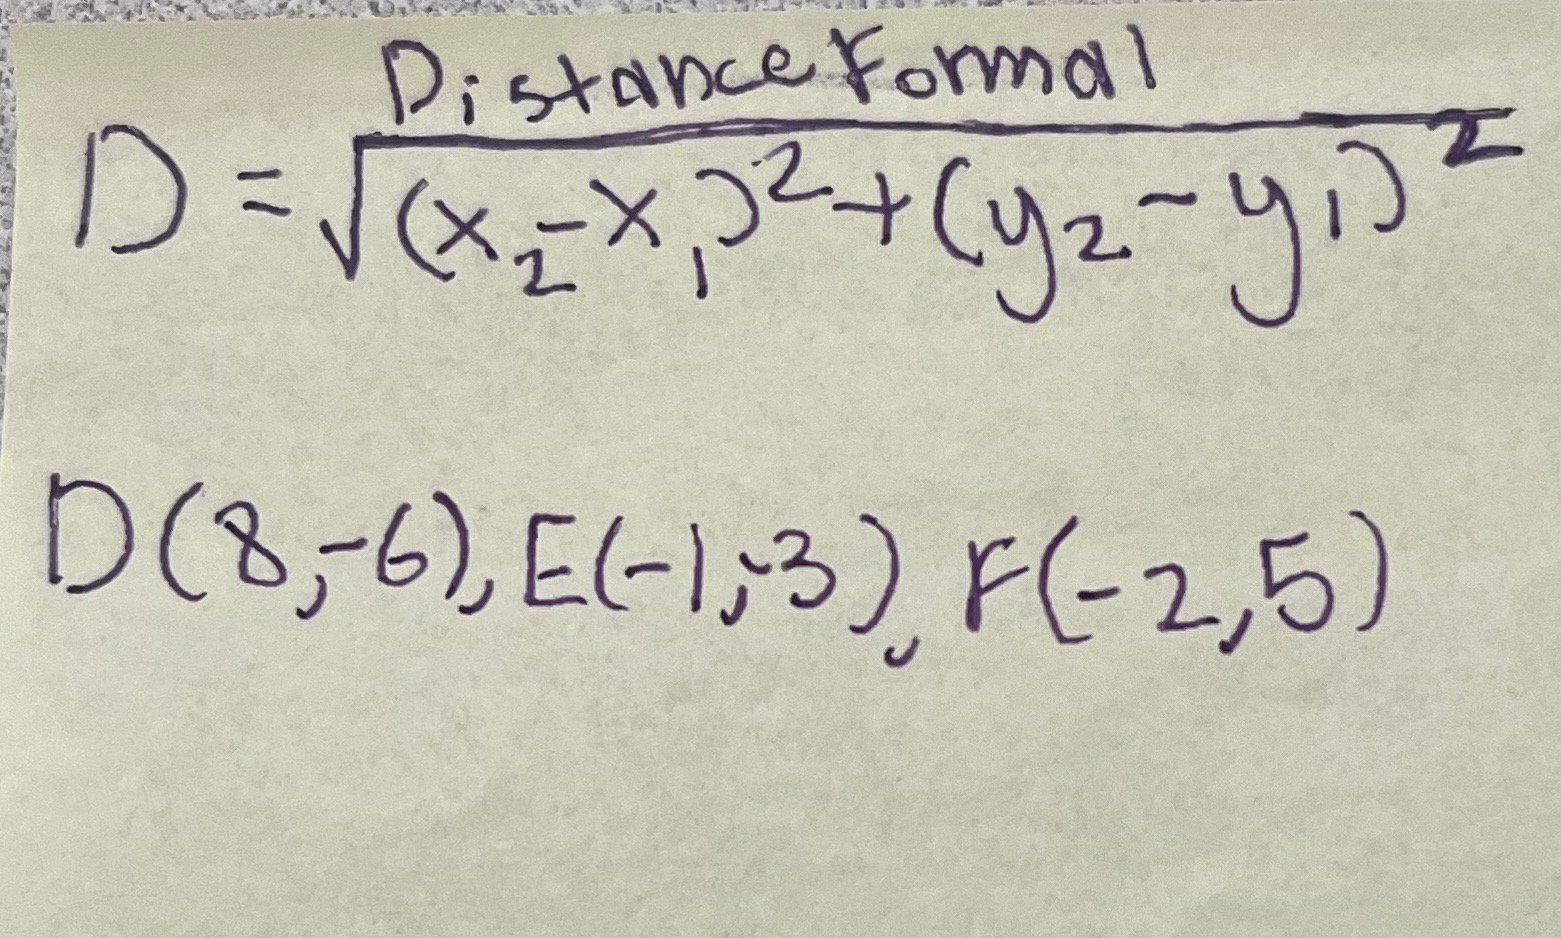 Distance Formal
D = √(x₂-x₁)² + (y₂-y₁)²
D(8,-6), E(-1,-3), F(-2,5)